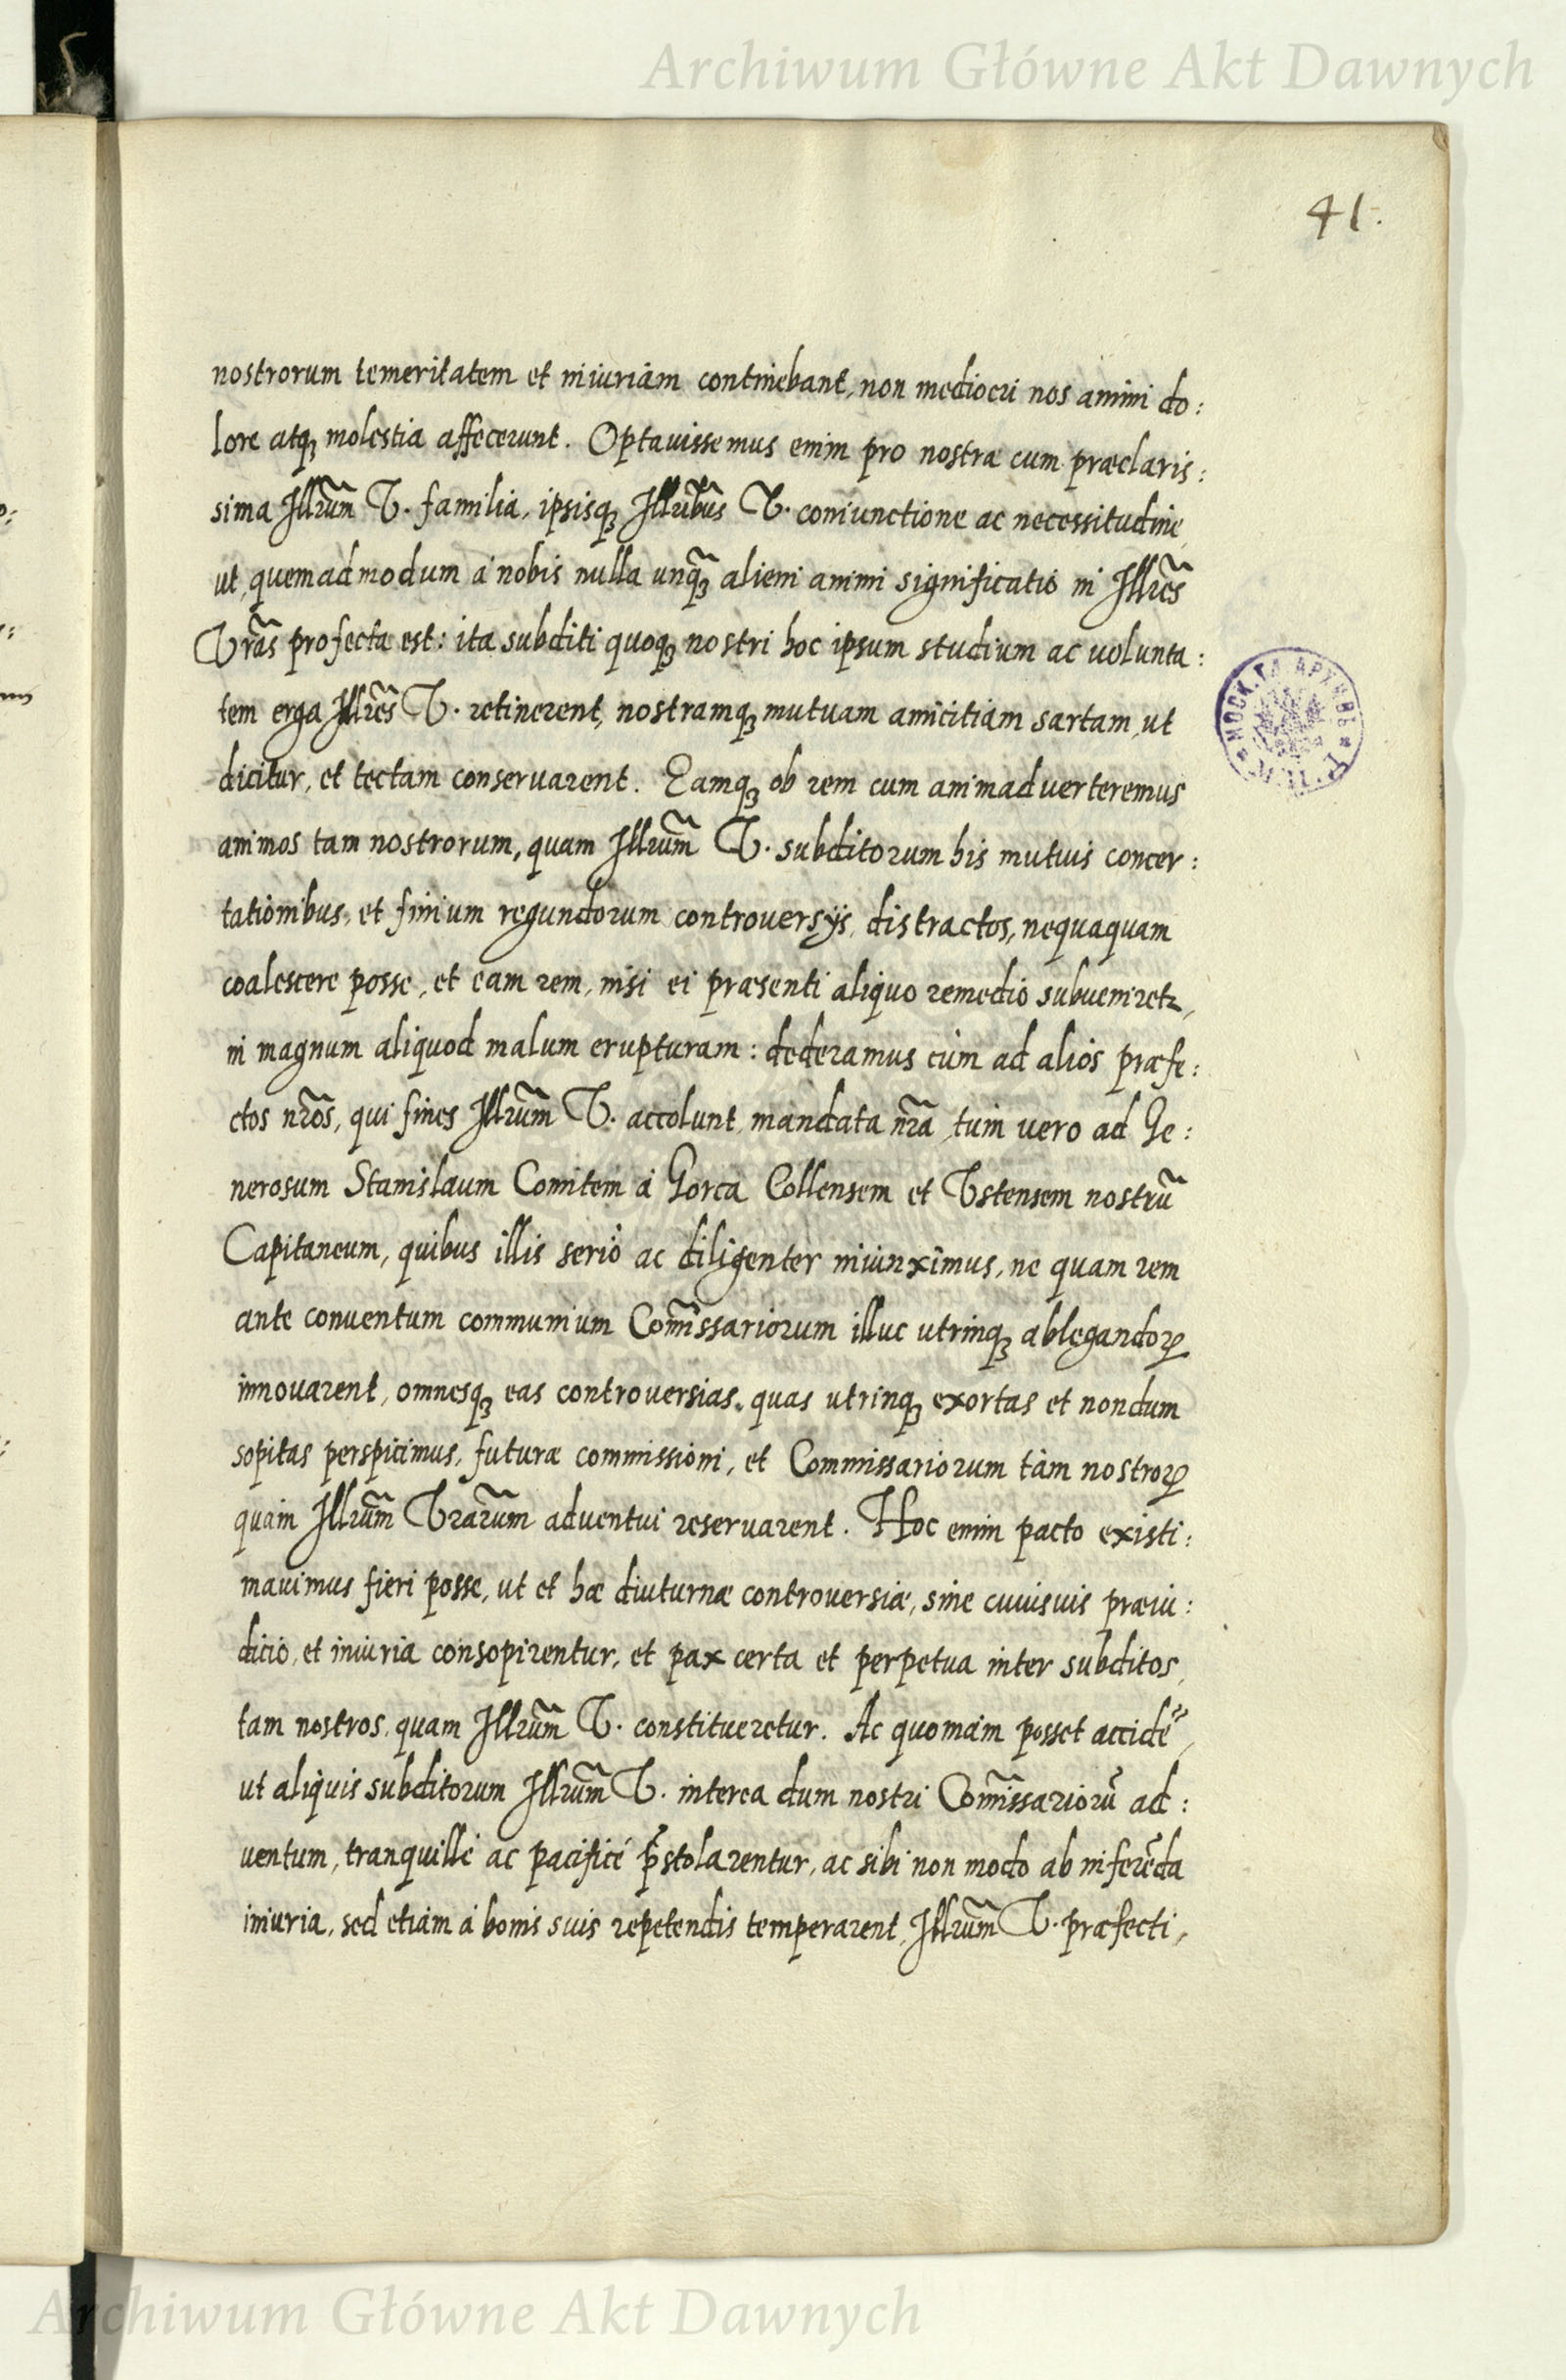 Archiwum Główne Akt Dawnych
41.
nostrorum temeritatem et iniuriam continebant, non mediocri nos animi do:
lore atq; molestia affecerunt. Optauissemus enim pro nostra cum præclaris:
sima Illrum̃ V. familia, ipsisq; Illribus̃ V. coniunctione ac necessitudine,
ut, quemadmodum à nobis nulla unq̃; alieni animi significatio in Illres̃
Vras̃ profecta est: ita subditi quoq; nostri hoc ipsum studium ac uolunta:
tem erga Illres̃ V. retinerent, nostramq; mutuam amicitiam sartam, ut
dicitur, et tectam conseruarent. Eamq; ob rem cum animaduerteremus
animos tam nostrorum, quam Illrum̃ V. subditorum his mutuis concer:
tationibus, et finium regundorum controuersÿs, distractos, nequaquam
coalescere posse, et eam rem, nisi ei præsenti aliquo remedio subueniretr,
in magnum aliquod malum erupturam: dederamus cùm ad alios præfe:
ctos nros̃, qui fines Illrum̃ V. accolunt, mandata nrã, tum vero ad Ge:
nerosum Stanislaum Comitem à Gorca Collensem et Vstensem nostrũ
Capitaneum, quibus illis seriò ac diligenter iniunximus, ne quam rem
ante conuentum communium Com̃issariorum illuc utrinq; ablegandoꝝ
innouarent, omnesq; eas controuersias, quas utrinq; exortas et nondum
sopitas perspicimus, futuræ commissioni, et Commissariorum tàm nostroꝝ
quàm Illrum̃ Vrarum̃ aduentui reseruarent. Hoc enim pacto existi:
mauimus fieri posse, ut et hæ diuturnæ controuersiæ, sine cuiusuis præiu:
dicio, et iniuria consopirentur, et pax certa et perpetua inter subditos,
tam nostros, quam Illrum̃ V. constitueretur. Ac quoniam posset accidẽ,
ut aliquis subditorum Illrum̃ V. interea dum nostri Com̃issariorũ ad:
uentum, tranquillè ac pacificè p̃stolarentur, ac sibi non modo ab inferẽda
iniuria, sed etiam à bonis suis repetendis temperarent, Illrum̃ V. præfecti,
Archiwum Główne Akt Dawnych